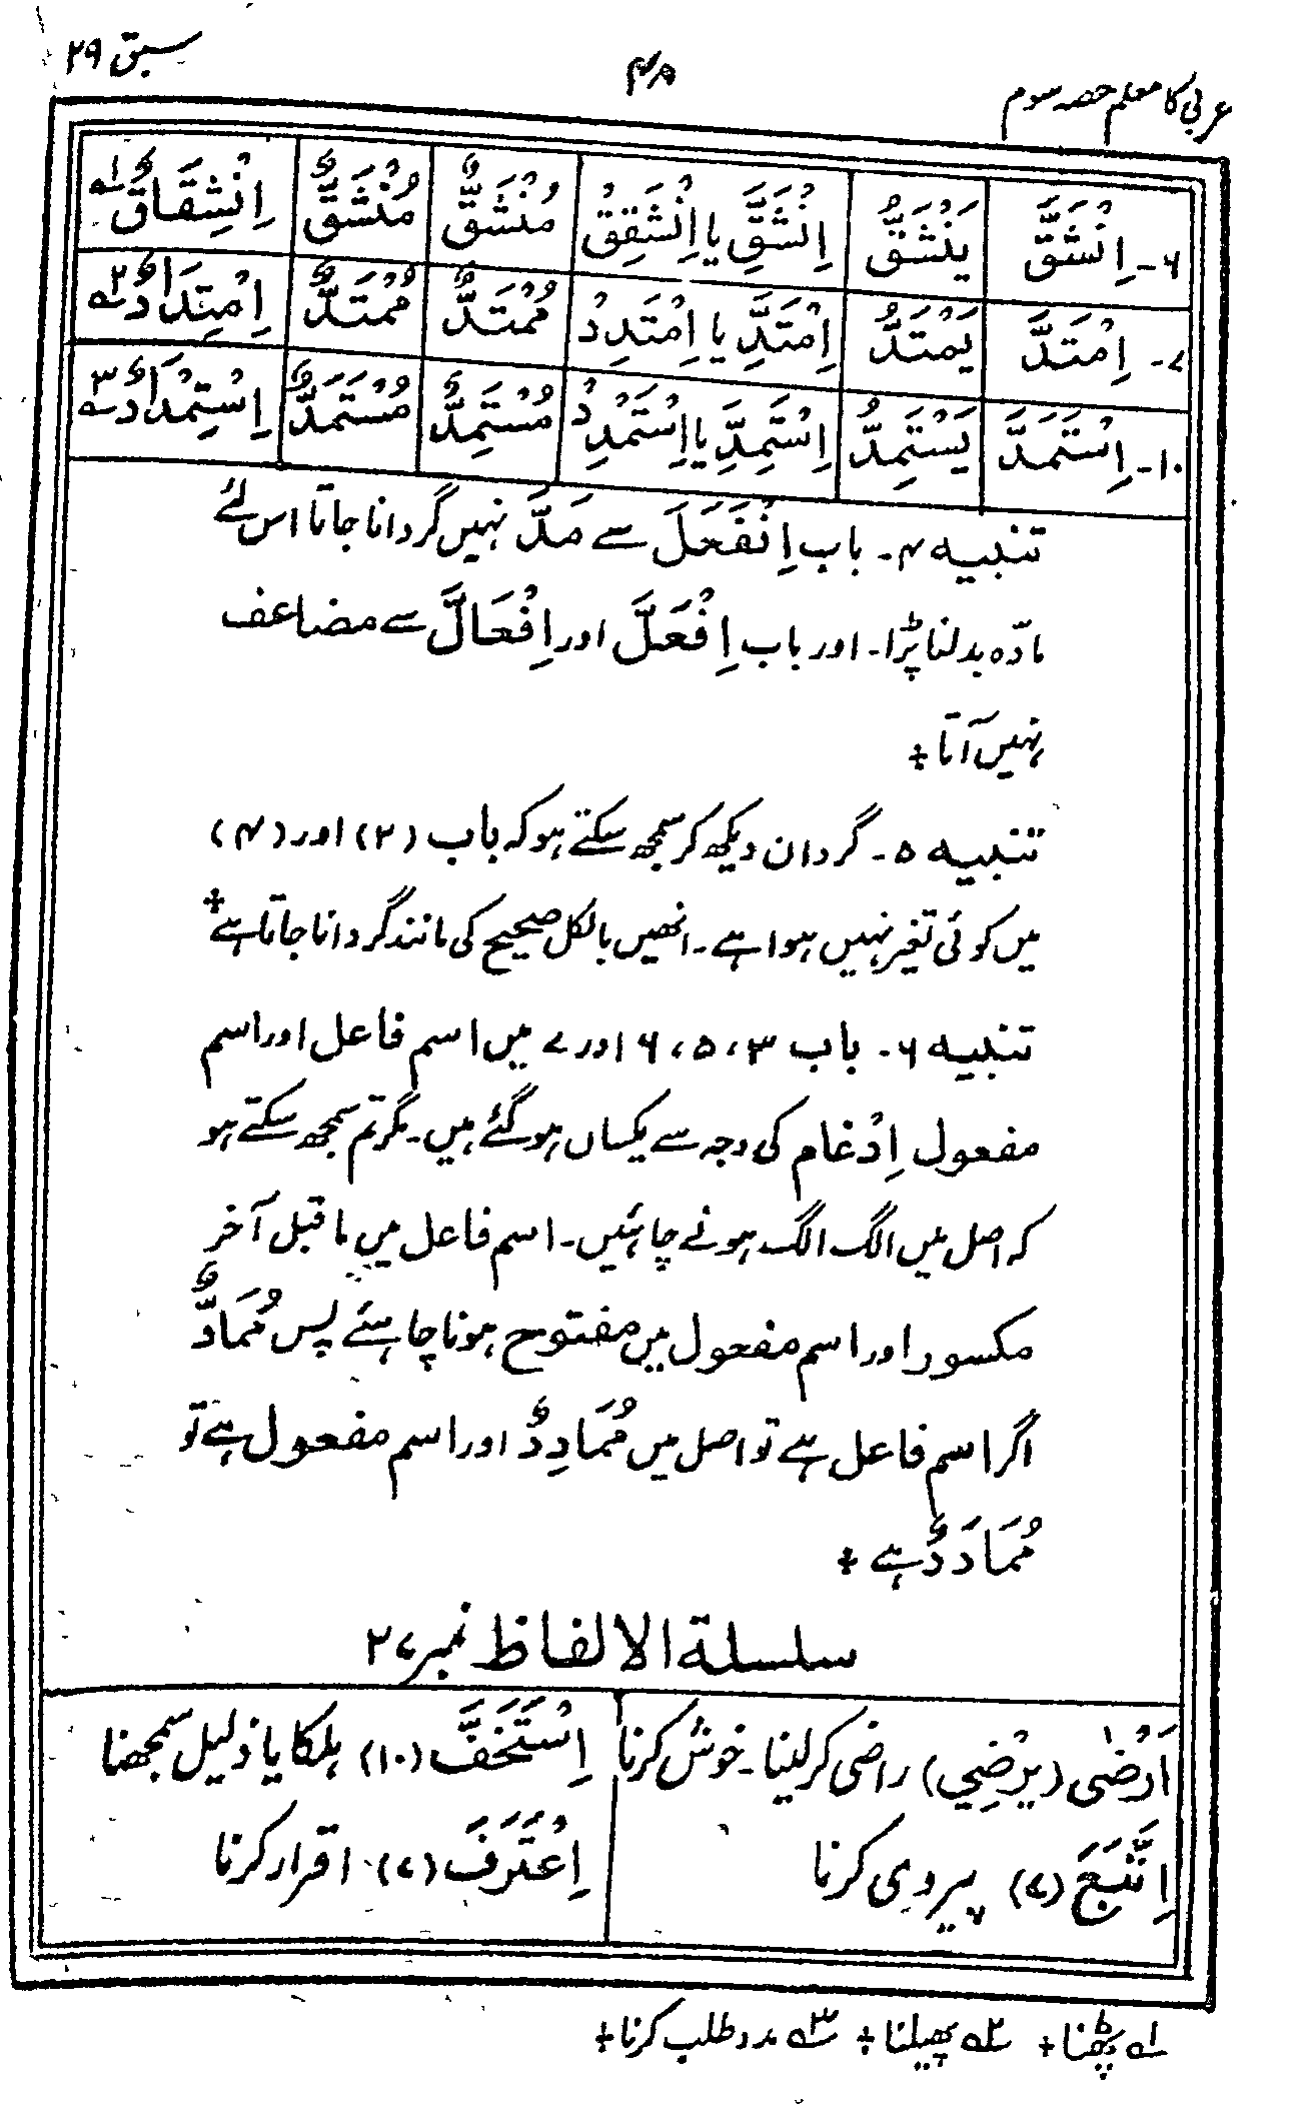 عربی کا معلم حصہ سوم ۴۸ سبق ۲۹
۶- اِنْشَقَّ یَنْشَقُّ اِنْشَقِّ یا اِنْشَقِقْ مُنْشَقٌّ مُنْشَقٌّ اِنْشِقَاقٌ ۱؎
۷- اِمْتَدَّ یَمْتَدُّ اِمْتَدِّ یا اِمْتَدِدْ مُمْتَدٌّ مُمْتَدٌّ اِمْتِدَادٌ ۲؎
۱۰- اِسْتَمَدَّ یَسْتَمِدُّ اِسْتَمِدِّ یا اِسْتَمْدِدْ مُسْتَمِدٌّ مُسْتَمَدٌّ اِسْتِمْدَادٌ ۳؎
تنبیہ ۴- باب اِنْفَعَلَ سے مَدَّ نہیں گردانا جاتا اس لئے
مادّہ بدلنا پڑا۔ اور باب اِفْعَلَّ اور اِفْعَالَّ سے مضاعف
نہیں آتا +
تنبیہ ۵- گردان دیکھ کر سمجھ سکتے ہو کہ باب (۲) اور (۴)
میں کوئی تغیر نہیں ہوا ہے۔ انھیں بالکل صحیح کی مانند گردانا جاتا ہے +
تنبیہ ۶- باب ۳، ۵، ۶ اور ۷ میں اسم فاعل اور اسم
مفعول اِدْغام کی وجہ سے یکساں ہوگئے ہیں۔ مگر تم سمجھ سکتے ہو
کہ اصل میں الگ الگ ہونے چاہئیں۔ اسم فاعل میں ماقبل آخر
مکسور اور اسم مفعول میں مفتوح ہونا چاہئے پس مُمَادٌّ
اگر اسم فاعل ہے تو اصل میں مُمَادِدٌ اور اسم مفعول ہے تو
مُمَادَدٌ ہے +
سلسلة الالفاظ نمبر ۲۷
اَرْضٰی (یُرْضِی) راضی کرلینا۔ خوش کرنا
اِتَّبَعَ (۷) پیروی کرنا
اِسْتَخَفَّ (۱۰) ہلکا یا ذلیل سمجھنا
اِعْتَرَفَ (۷)۔ اقرار کرنا
۱؎ پٹھنا + ۲؎ پھیلنا + ۳؎ مدد طلب کرنا +